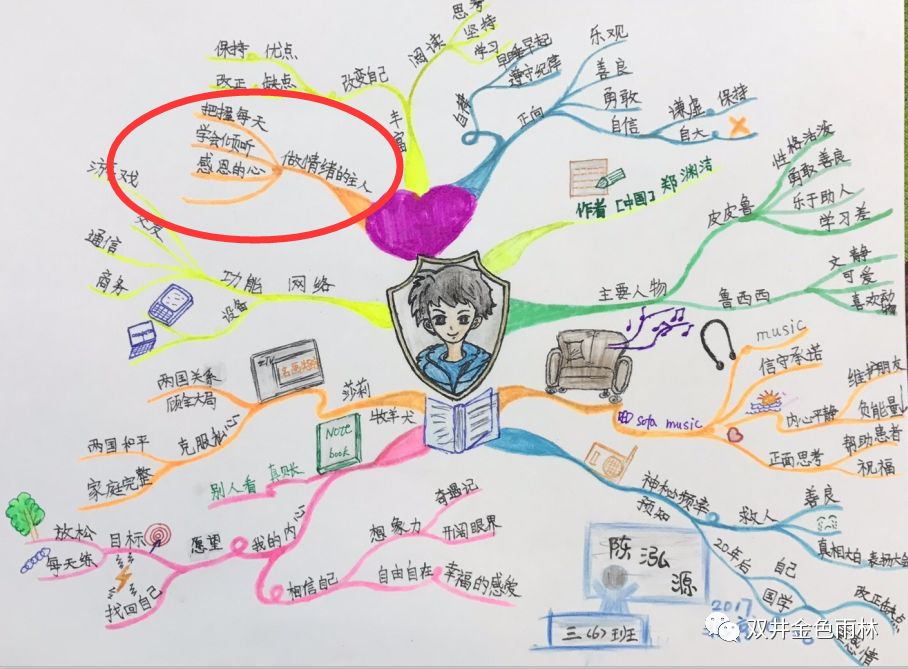 保持 优点
改正 缺点
改变自己
思考
坚持
学习
阅读
丰富
早睡早起
遵守纪律
自律
乐观
善良
勇敢
自信
正向
谦虚 保持
自大
把握每天
学会倾听
感恩的心
做情绪的主人
作者 [中国] 郑渊洁
性格活泼
勇敢善良
乐于助人
学习差
皮皮鲁
主要人物
鲁西西
文静
可爱
喜欢动物
交友
通信
商务
功能
网络
设备
两国关系
顾全大局
莎莉
牧羊犬
两国和平
家庭完整
克服私心
Note
book
别人看 真账
music
信守承诺
sofa music
内心平静
维护朋友
负能量
正面思考
帮助患者
祝福
神秘频率
预知
救人
善良
真相大白
20年后
自己
国学
改正缺点
放松
每天练
目标
找回自己
愿望
我的内心
想象力
奇遇记
开阔眼界
相信自己
自由自在
幸福的感受
陈泓
源
三(6)班
2017
双井金色雨林